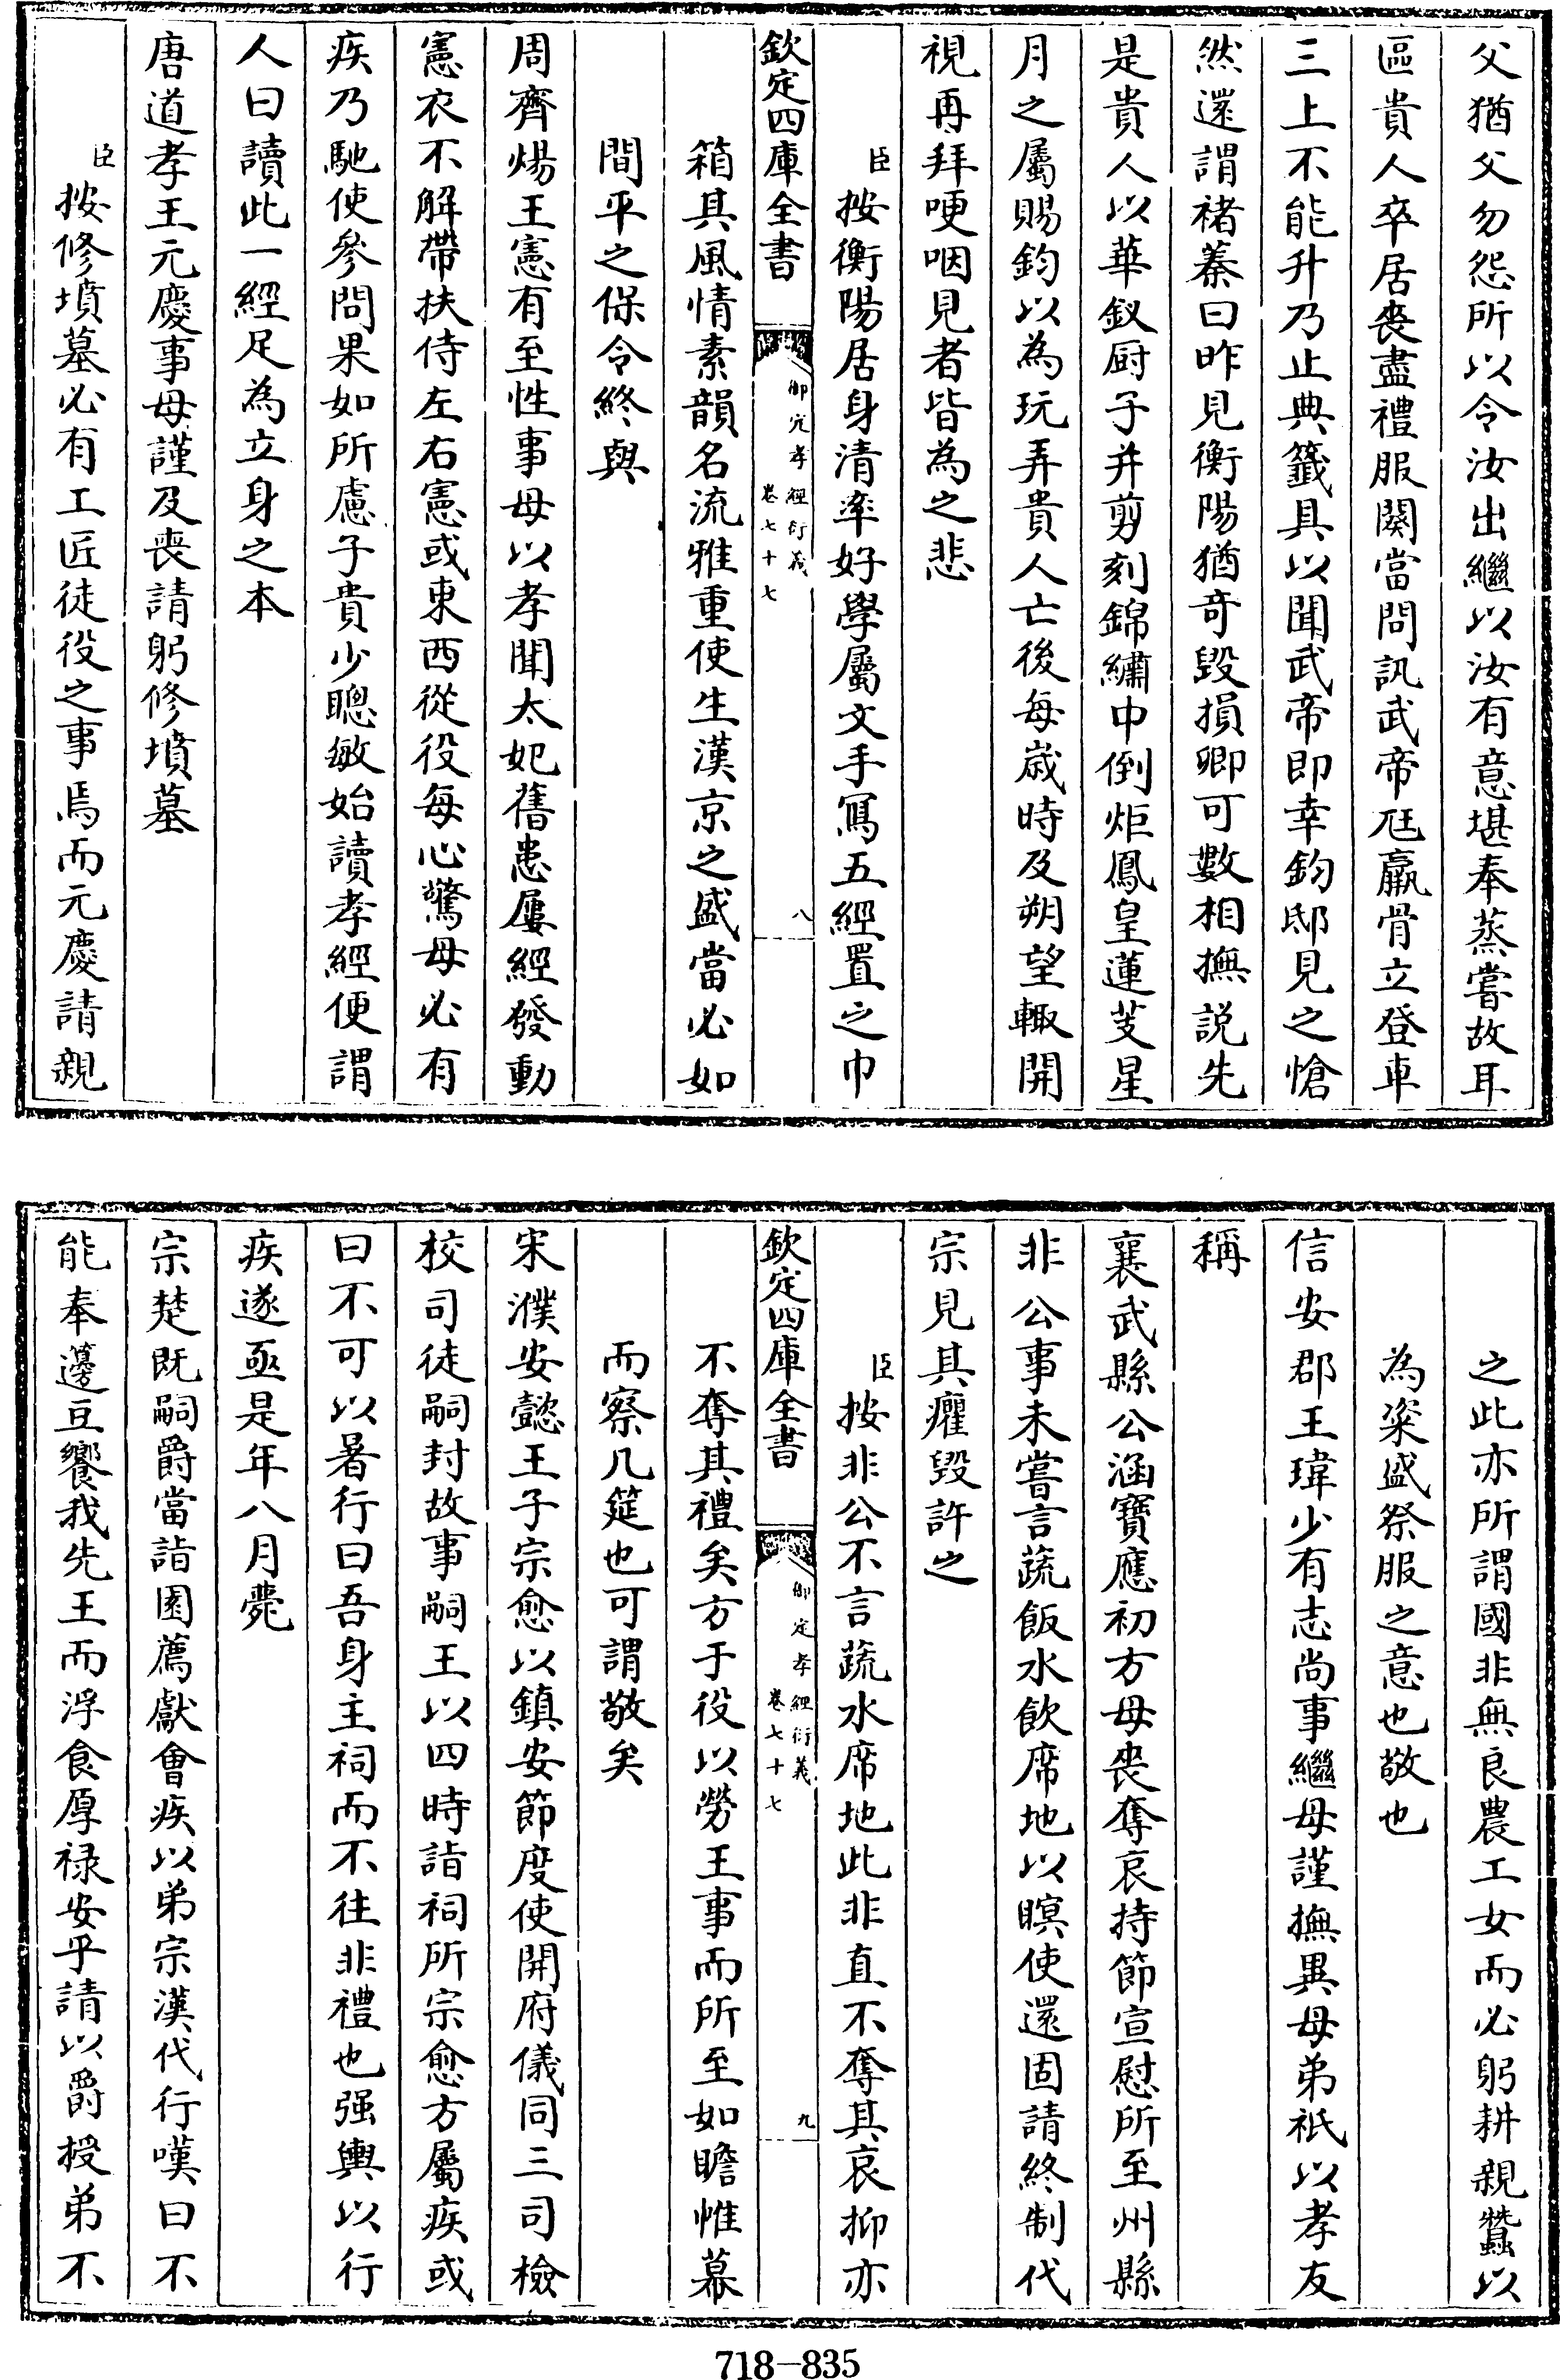 父猶父勿怨所以令汝出繼以汝有意堪奉蒸嘗故耳
區貴人卒居喪盡禮服闋當問訊武帝尫羸骨立登車
三上不能升乃止典籤具以聞武帝即幸鈞邸見之愴
然還謂褚蓁曰昨見衡陽猶奇毀損卿可數相撫説先
是貴人以華釵厨子并剪刻錦繡中倒炬鳳皇蓮芰星
月之屬賜鈞以為玩弄貴人亡後每歲時及朔望輙開
視再拜哽咽見者皆為之悲
臣按衡陽居身清率好學屬文手寫五經置之巾
欽定四庫全書
御定孝經衍義
卷七十七
八
箱其風情素韻名流雅重使生漢京之盛當必如
間平之保令終與
周齊煬王憲有至性事母以孝聞太妃舊患屢經發動
憲衣不解帶扶侍左右憲或東西從役每心驚母必有
疾乃馳使參問果如所慮子貴少聰敏始讀孝經便謂
人曰讀此一經足為立身之本
唐道孝王元慶事母謹及喪請躬修墳墓
臣按修墳墓必有工匠徒役之事焉而元慶請親
之此亦所謂國非無良農工女而必躬耕親蠶以
為粢盛祭服之意也敬也
信安郡王瑋少有志尚事繼母謹撫異母弟祇以孝友
稱
襄武縣公涵寶應初方母喪奪哀持節宣慰所至州縣
非公事未嘗言蔬飯水飲席地以瞑使還固請終制代
宗見其癯毀許之
臣按非公不言蔬水席地此非直不奪其哀抑亦
欽定四庫全書
御定孝經衍義
卷七十七
九
不奪其禮矣方于役以勞王事而所至如瞻帷幕
而察几筵也可謂敬矣
宋濮安懿王子宗愈以鎮安節度使開府儀同三司檢
校司徒嗣封故事嗣王以四時詣祠所宗愈方屬疾或
曰不可以暑行曰吾身主祠而不往非禮也强輿以行
疾遂亟是年八月薨
宗楚既嗣爵當詣園薦獻會疾以弟宗漢代行嘆曰不
能奉籩豆饗我先王而浮食厚禄安乎請以爵授弟不
718-835